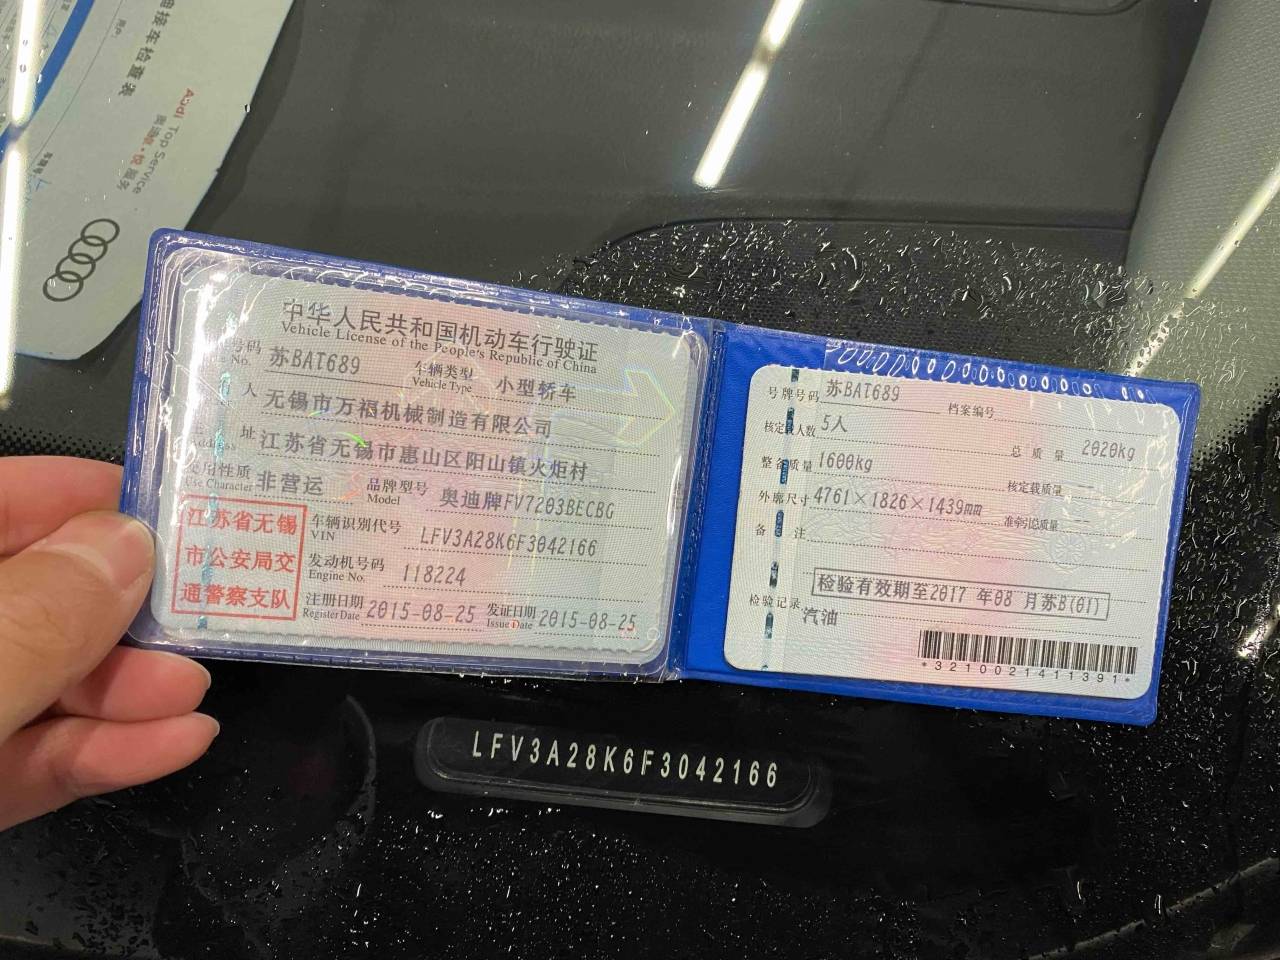 接车检查表
Audi Top Service
奥迪·悦服务
中华人民共和国机动车行驶证
Vehicle License of the People's Republic of China
号码 苏BAT689 车辆类型 小型轿车
No. Vehicle Type
人 无锡市万福机械制造有限公司
址 江苏省无锡市惠山区阳山镇火炬村
Address
使用性质 非营运 品牌型号 奥迪牌FV7203BECBG
Use Character Model
江苏省无锡
市公安局交
通警察支队
车辆识别代号 LFV3A28K6F3042166
VIN
发动机号码 118224
Engine No.
注册日期 2015-08-25 发证日期 2015-08-25
Register Date Issue Date
号牌号码 苏BAT689 档案编号
核定载人数 5人 总质量 2020kg
整备质量 1600kg 核定载质量 --
外廓尺寸 4761×1826×1439mm 准牵引总质量 --
备注
检验有效期至2017 年08 月苏B(01)
检验记录 汽油
*3210021411391*
LFV3A28K6F3042166